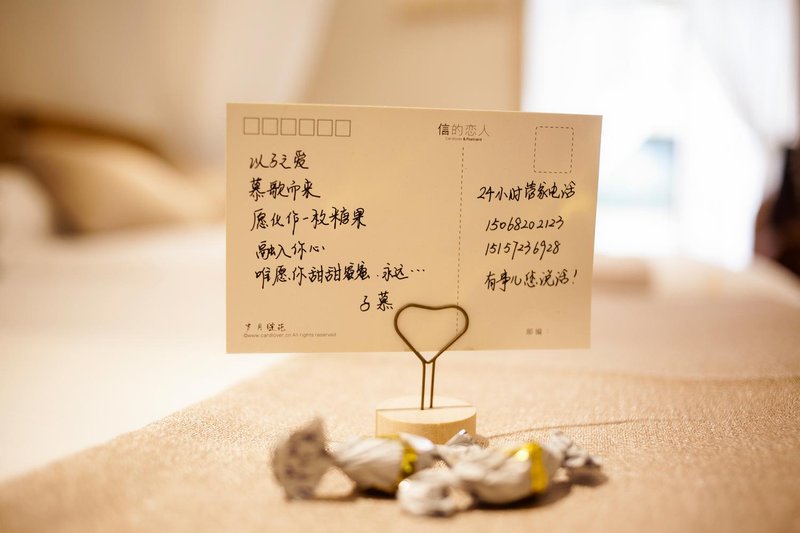 信的恋人
以子之爱
慕歌而来
愿化作一枚糖果
融入你心
唯愿你甜甜蜜蜜·永远…
子慕
24小时管家电话
15068202123
15157236928
有事儿您说话!
©www.cardlover.cn All rights reserved
邮编: